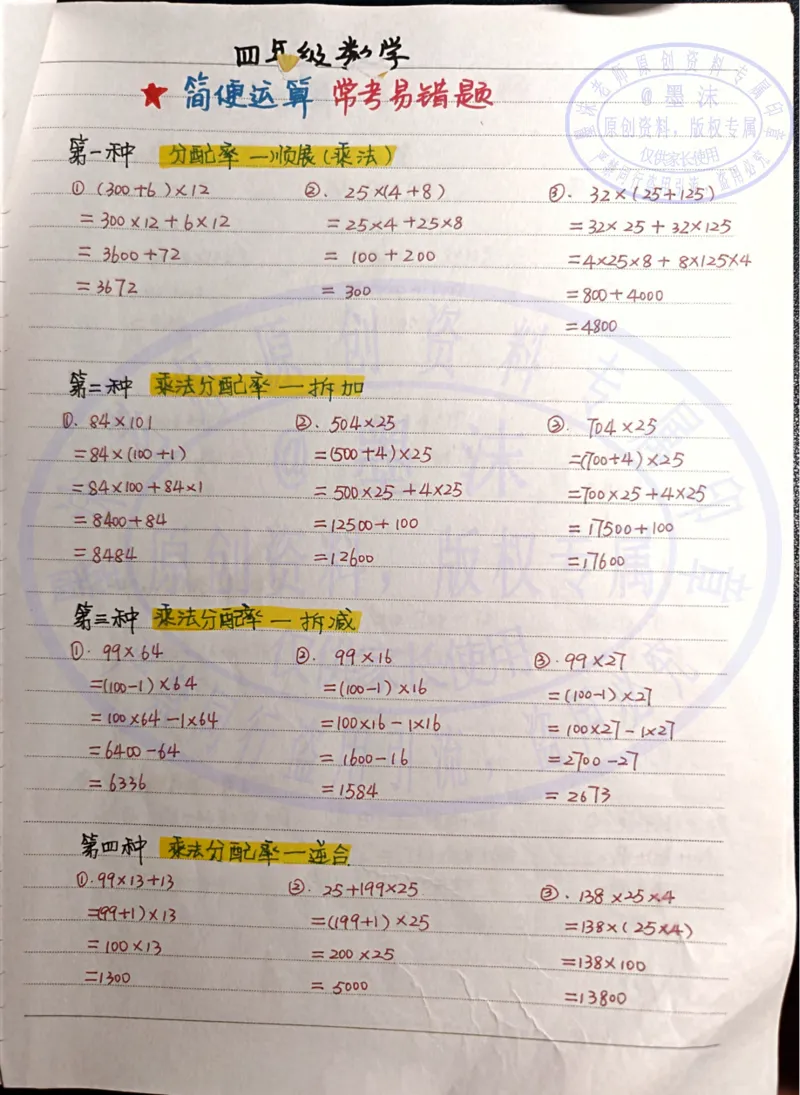 四年级数学
★ 简便运算 常考易错题
第一种 分配率—顺展(乘法)
① (300+6)×12
=300×12+6×12
=3600+72
=3672
②. 25×(4+8)
=25×4+25×8
=100+200
=300
③. 32×(25+125)
=32×25+32×125
=4×25×8+8×125×4
=800+4000
=4800
第二种 乘法分配率—拆加
①. 84×101
=84×(100+1)
=84×100+84×1
=8400+84
=8484
②. 504×25
=(500+4)×25
=500×25+4×25
=12500+100
=12600
③. 704×25
=(700+4)×25
=700×25+4×25
=17500+100
=17600
第三种 乘法分配率—拆减
①. 99×64
=(100-1)×64
=100×64-1×64
=6400-64
=6336
②. 99×16
=(100-1)×16
=100×16-1×16
=1600-16
=1584
③. 99×27
=(100-1)×27
=100×27-1×27
=2700-27
=2673
第四种 乘法分配率—逆合
①. 99×13+13
=(99+1)×13
=100×13
=1300
②. 25+199×25
=(199+1)×25
=200×25
=5000
③. 138×25×4
=138×(25×4)
=138×100
=13800
墨沫老师原创资料专属印章
@墨沫
原创资料，版权专属
仅供家长使用